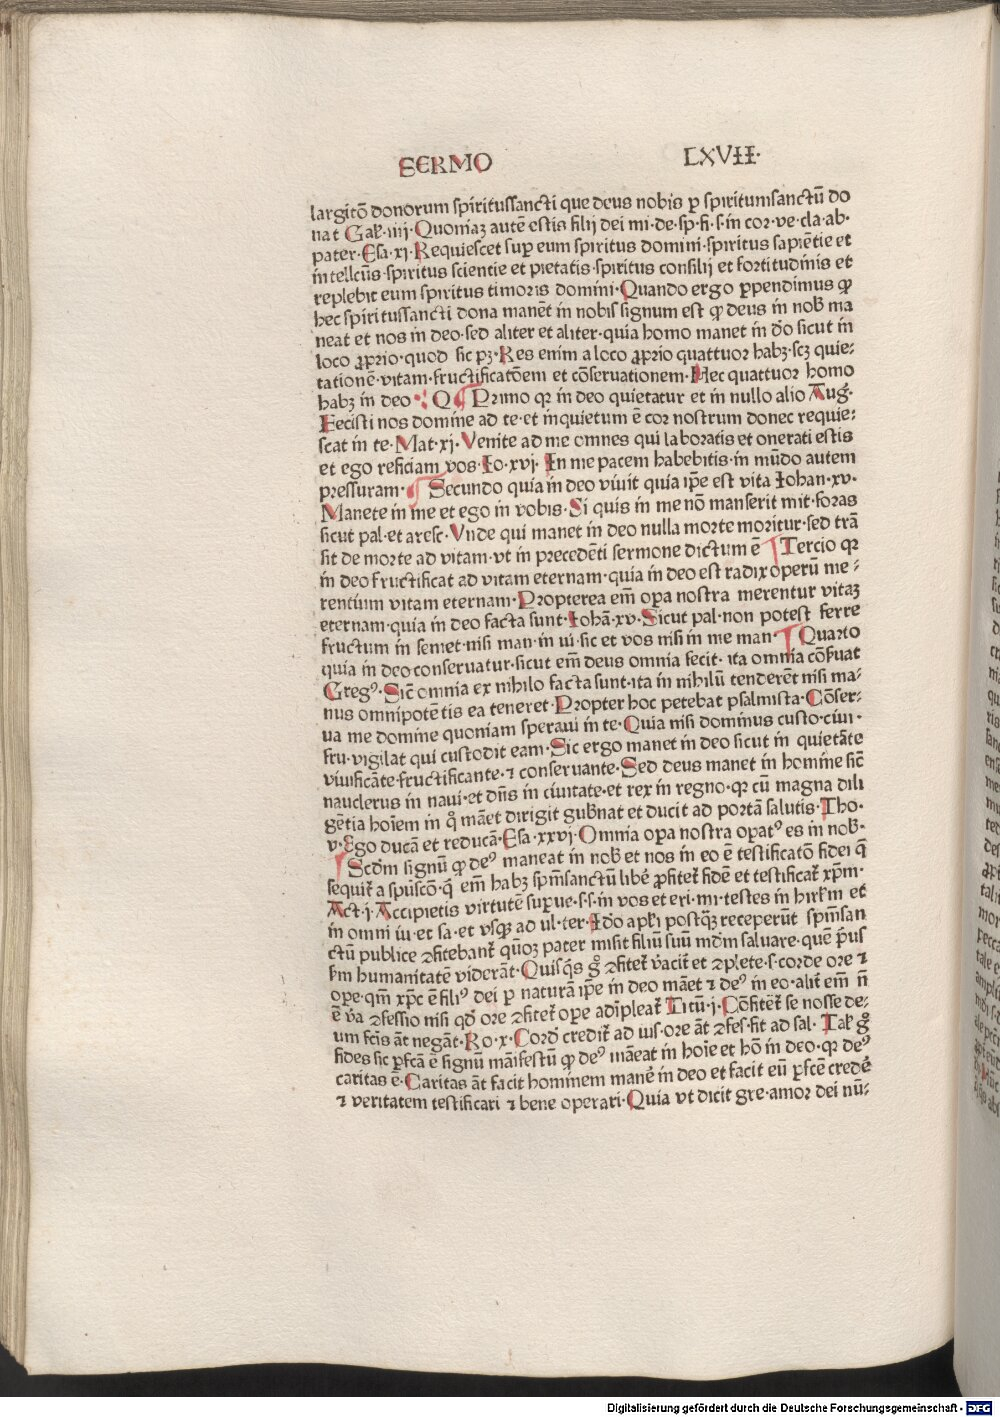 SERMO LXVII·
largitō donorum spiritussancti que deus nobis p̱ spiritumsanctū do
nat Gal̄·iiij·Quoniaꝫ autē estis filij dei mi·de·sp̄·fi·s·in cor·ve·cla·ab·
pater·Esa·xi·Requiescet sup̱ eum spiritus domini·spiritus sapiētie et
intellcūs·spiritus scientie et pietatis·spiritus consilij et fortitudinis et
replebit eum spiritus timoris domini·Quando ergo p̱pendimus ꝙ
hec spiritussancti dona manēt in nobis signum est ꝙ deus in nob̄ ma
neat et nos in deo·sed aliter et aliter·quia homo manet in d̄o sicut in
loco ꝓprio·quod sic pꝫ·Res enim a loco ꝓprio quattuor habꝫ·scꝫ quie⸗
tationē·vitam·fructificatōem et cōseruationem·Hec quattuor homo
habꝫ in deo·Q Primo qꝛ in deo quietatur et in nullo alio Aug̉·
Fecisti nos domine ad te·et inquietum ē cor nostrum donec requie⸗
scat in te·Mat·xj·Venite ad me omnes qui laboratis et onerati estis
et ego reficiam vos·Io·xvj·In me pacem habebitis·in mūdo autem
pressuram· Secundo quia in deo viuit quia ip̄e est vita Iohan·xv·
Manete in me et ego in vobis·Si quis in me nō manserit mit·foras
sicut pal·et aresc·Vnde qui manet in deo nulla morte moritur·sed trā
sit de morte ad vitam·vt in precedēti sermone dictum ē Tercio qꝛ
in deo fructificat ad vitam eternam·quia in deo est radix operū me⸗
rentium vitam eternam·Propterea em̄ oꝑa nostra merentur vitaꝫ
eternam·quia in deo facta sunt·Iohā·xv·Sicut pal·non potest ferre
fructum in semet·nisi man·in ui·sic et vos nisi in me man Quarto
quia in deo conseruatur·sicut em̄ deus omnia fecit·ita omnia cōs̉uat
Gregꝰ·Sic̄ omnia ex nihilo facta sunt·ita in nihilū tenderēt nisi ma⸗
nus omnipotētis ea teneret·Propter hoc petebat psalmista·Cōser⸗
ua me domine quoniam speraui in te·Quia nisi dominus custo·ciui·
fru·vigilat qui custodit eam·Sic ergo manet in deo sicut in quietāte
viuificāte·fructificante·ꝛ conseruante·Sed deus manet in homine sic̄
nauclerus in naui·et dn̄s in ciuitate·et rex in regno·qꝛ cū magna dili
gētia hoīem in q̊ māet dirigit gub̄nat et ducit ad portā salutis·Tho·
v·Ego ducā et reducā·Esa·xxvj·Omnia oꝑa nostra oꝑatꝰ es in nob̄·
Scd̄m signū ꝙ deꝰ maneat in nob̄ et nos in eo ē testificatō fidei q̄
sequit̄ a sp̄uscō·q̇ em̄ habꝫ sp̄m sanctū libe̓ ꝓfitet̄ fidē et testificat̄ xp̄m·
Act·j·Accipietis virtutē suꝑue·s·s·in vos et eri·mi·testes in hirl̄m et
in omni iu·et sa·et vsqꝫ ad ul·ter·Ido apl̄i postqꝫ receperūt sp̄m san
ctū publice ꝯfitebant̄ qūoꝫ pater misit filiū suū mūdm saluare·quē p̓us
s̄m humanitatē viderāt·Quisq̇s g̊ ꝯfitet̄ v̓acit̓ et ꝯplete·s·corde ore ꝛ
oꝑe·qm̄ xp̄c ē filiꝰ dei p̱ naturā ip̄e in deo māet ꝛ deꝰ in eo·alit̄ em̄ n̄
ē v̓a ꝯfessio nisi qd̓ ore ꝯfitet̄ oꝑe adīpleat̄ Titū·j·Cōfitēt̄ se nosse de⸗
um fcīs āt negāt·Ro·x·Cord̓ credit̄ ad ius·ore āt ꝯfes·fit ad sal· Tal̄ g̊
fides sic ꝑfcā ē signū māifestū ꝙ deꝰ māeat in hoīe et hō in deo·qꝛ deꝰ
caritas ē·Caritas āt facit hominem mane̓ in deo et facit eū ꝑfcē crede̓
ꝛ veritatem testificari ꝛ bene operari·Quia vt dicit gre·amor dei nū⸗
Digitalisierung gefördert durch die Deutsche Forschungsgemeinschaft - DFG